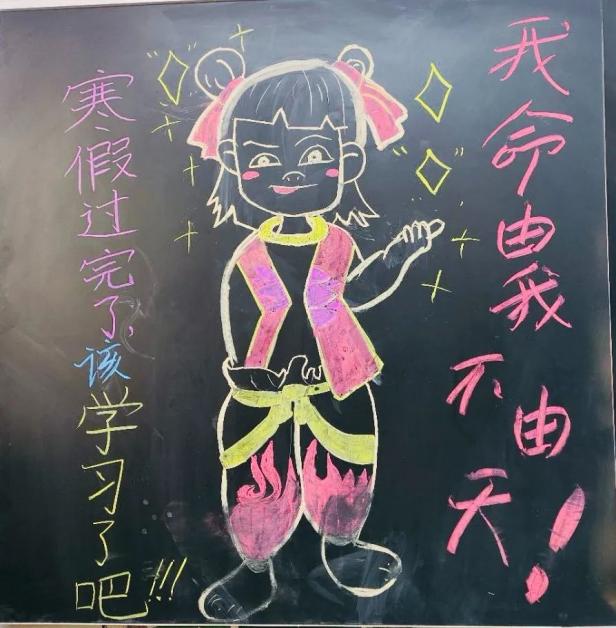 寒假过完了,该学习了吧!!!
我命由我不由天!